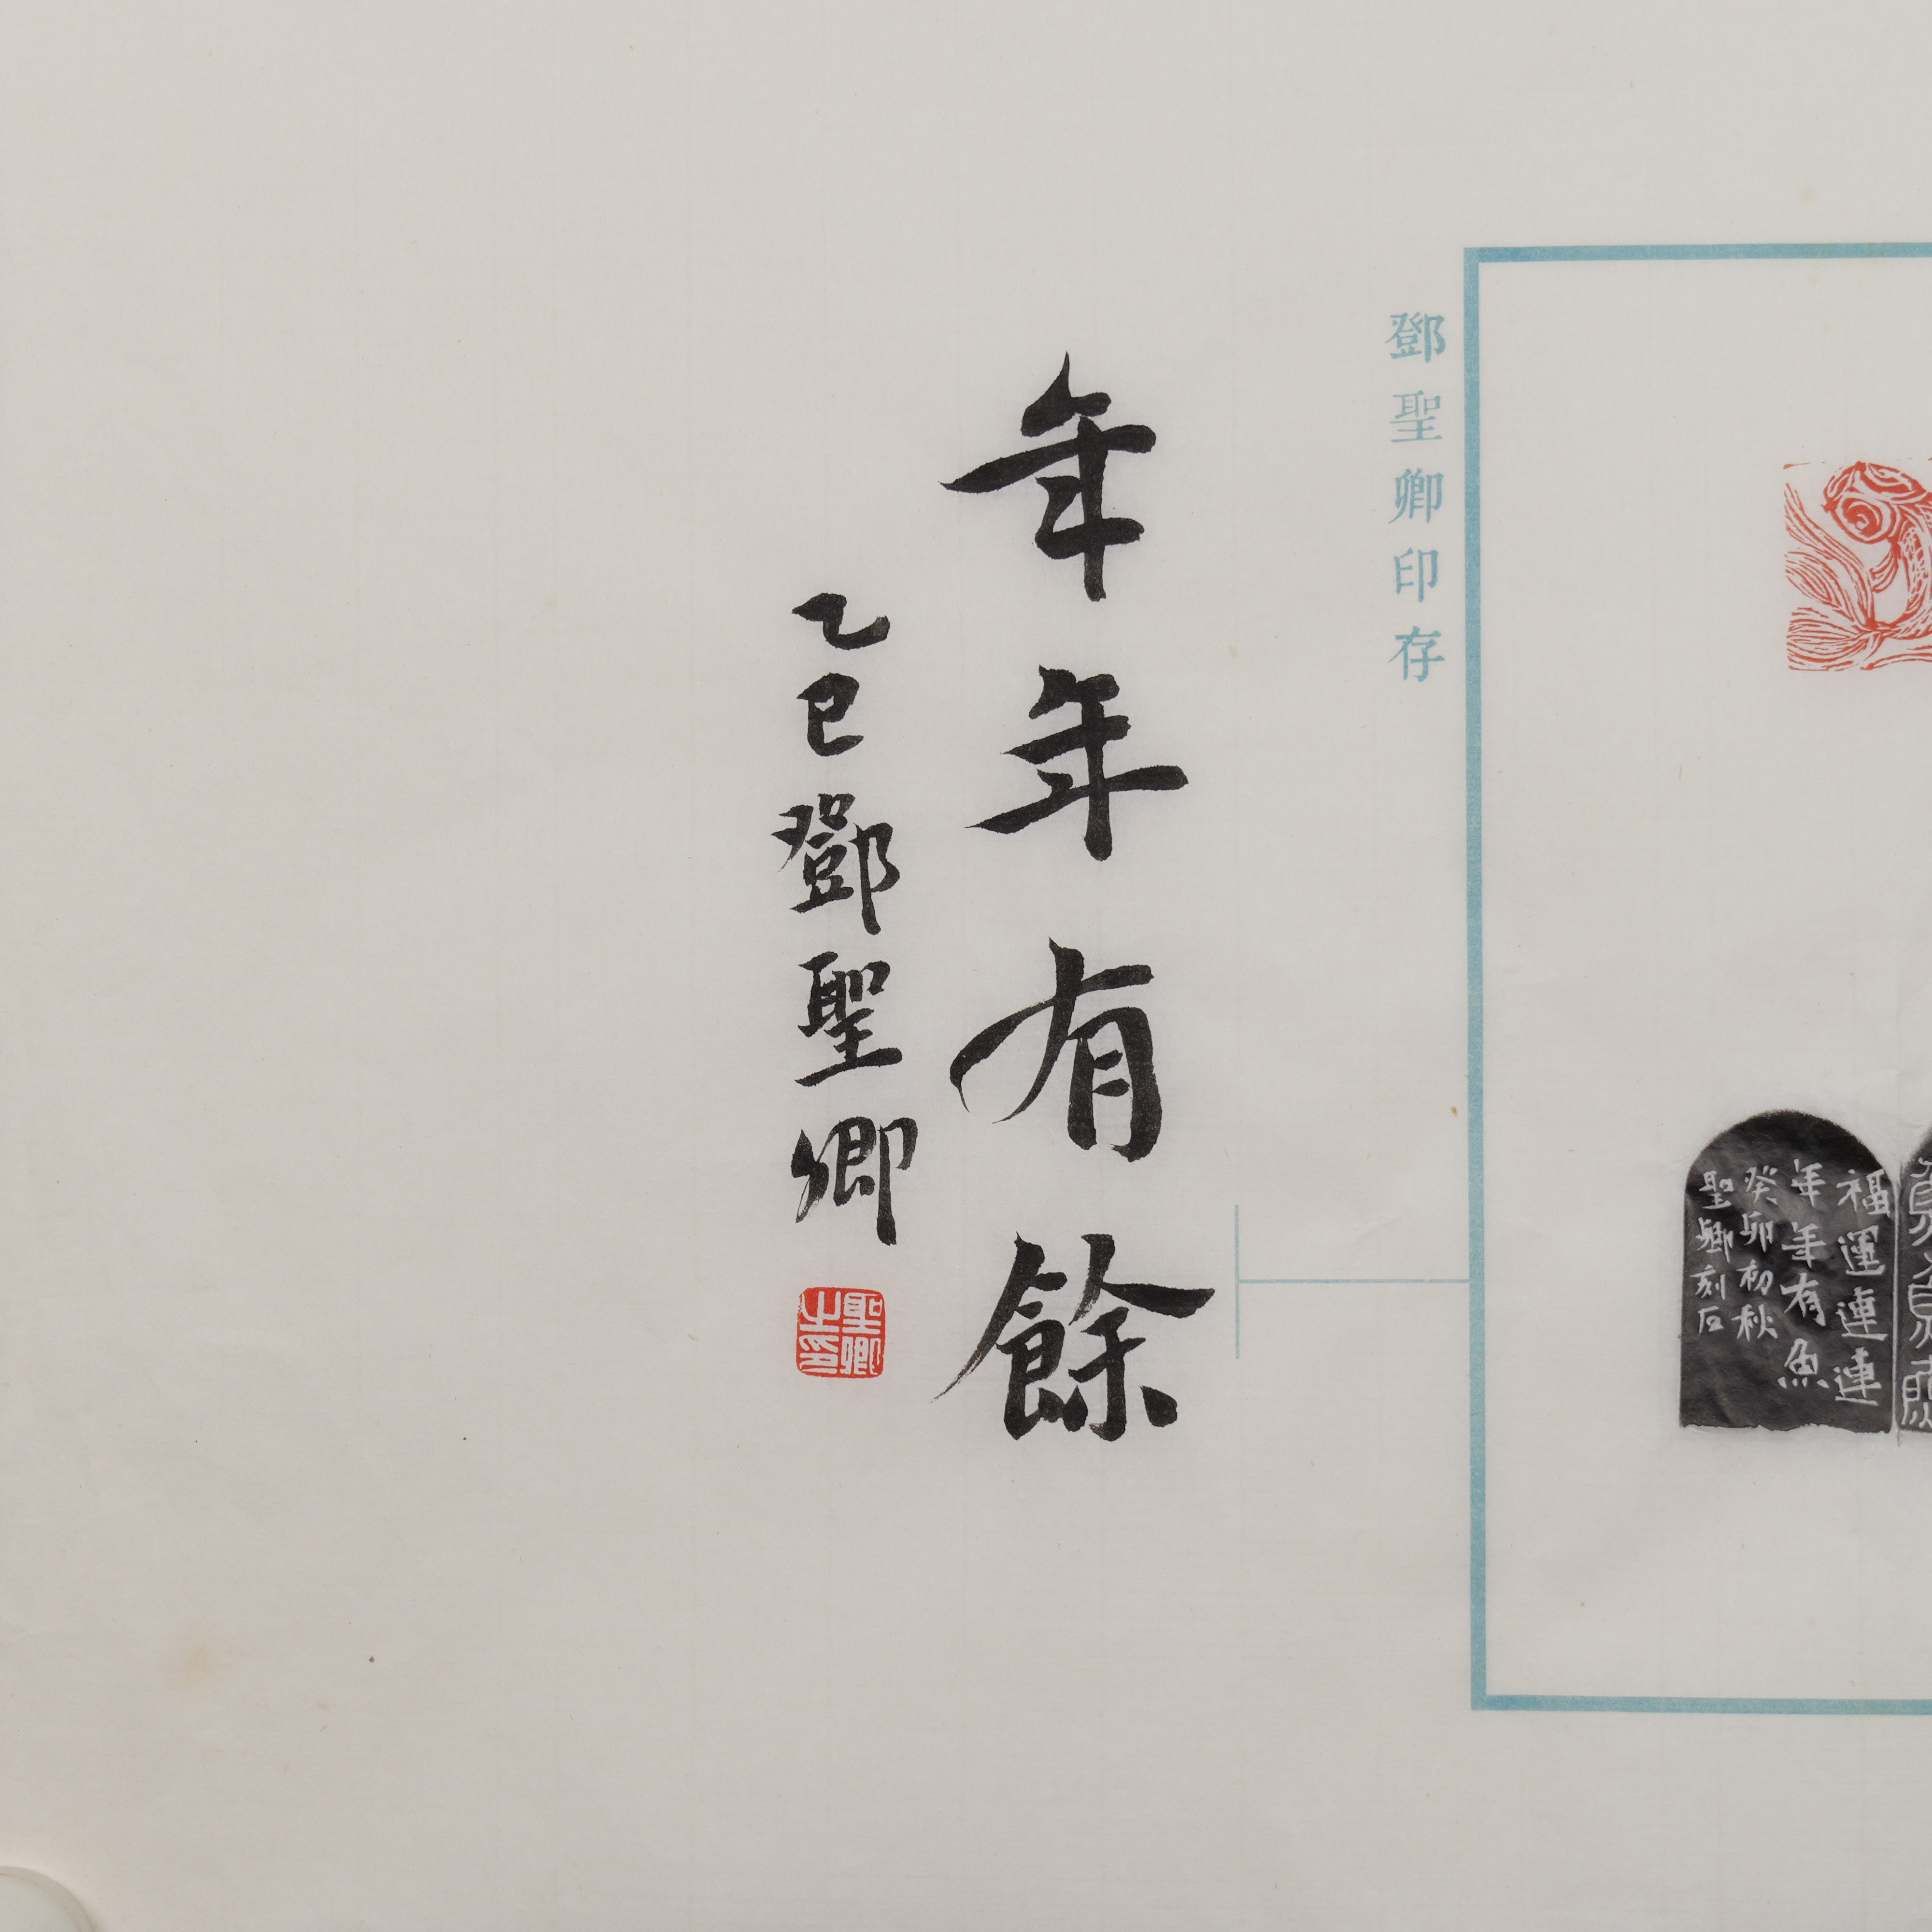 福運連連
年年有魚
癸卯初秋
聖卿刻石
鄧聖卿印存
年年有餘
乙巳鄧聖卿
聖卿之印